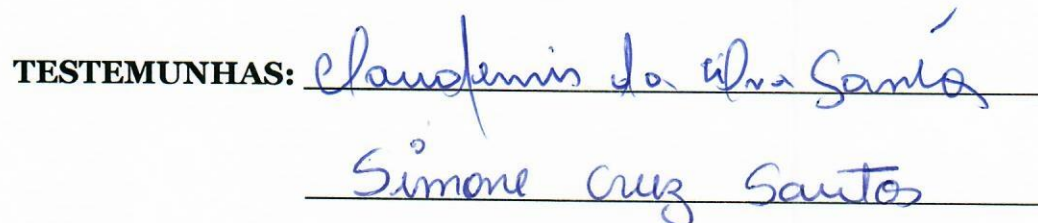 TESTEMUNHAS: Claudemis da Silva Santos
Simone Cruz Santos